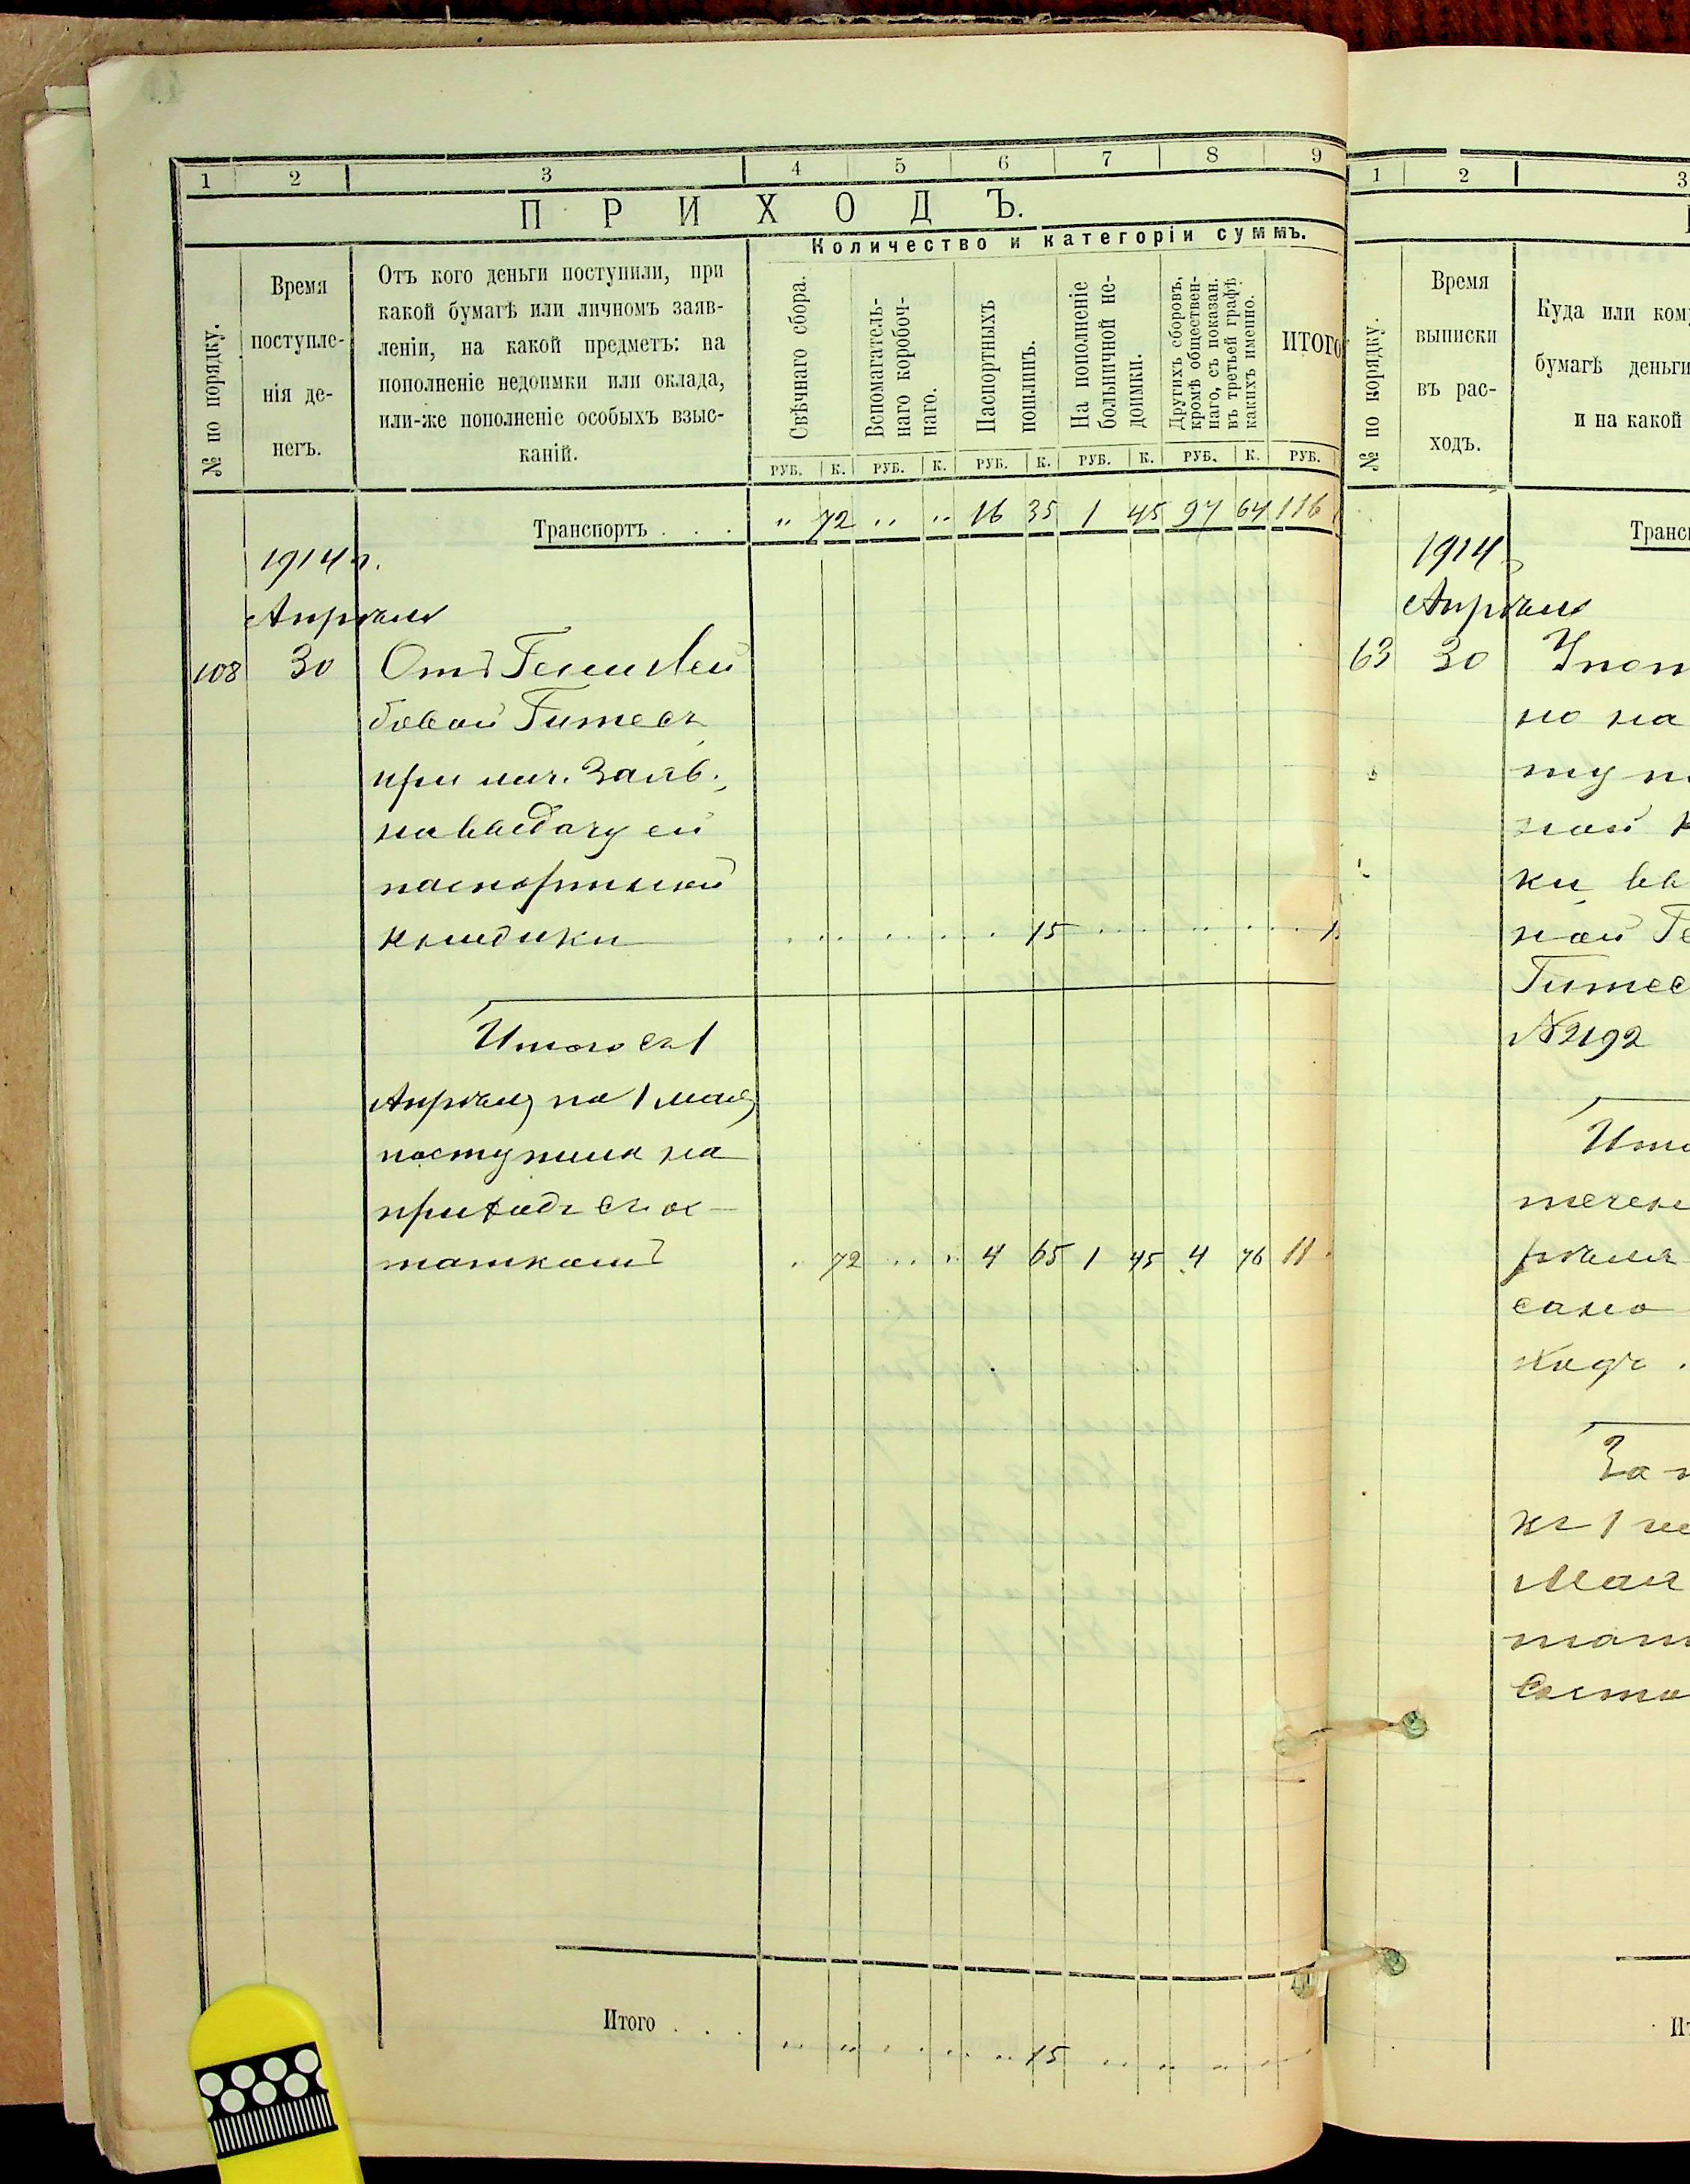 1 2 3 4 5 6 7 8 9
ПРИХОДЪ.
№ по порядку.
Время
поступле-
нія де-
негъ.
Отъ кого деньги поступили, при
какой бумагѣ или личномъ заяв-
леніи, на какой предметъ: на
пополненіе недоимки или оклада,
или-же пополненіе особыхъ взыс-
каній.
Количество и категоріи суммъ.
Свѣчнаго сбора.
Вспомагатель-
наго коробоч-
наго.
Паспортныхъ
пошлинъ.
На пополненіе
больничной не-
доимки.
Другихъ сборовъ,
кромѣ обществен-
наго, съ показан.
въ третьей графѣ
какихъ именно.
ИТОГО
РУБ. К. РУБ. К. РУБ. К. РУБ. К. РУБ. К. РУБ.
Транспортъ . . . " 72 " " 16 35 1 45 97 64 116
1914 г.
Апрѣля
108 30 Отъ
Гитесъ
при лич. заяв.,
на выдачу ей
паспортной
книжки 15
Итого съ 1
Апрѣля по 1 мая
поступило на
приходъ съ ос-
таткомъ 72 4 65 1 45 4 76 11
Итого . . . 15
1 2 3
№ по порядку.
Время
выписки
въ рас-
ходъ.
Куда или кому
бумагѣ деньги
и на какой
Трансп
1914
Апрѣля
63 30
но на
ту
ной к
ки вы
ной Ге
Гитес
№ 2192
Ито
течен
рѣля
сано
ходъ
За
къ 1
Мая
тат
Состо
Ит